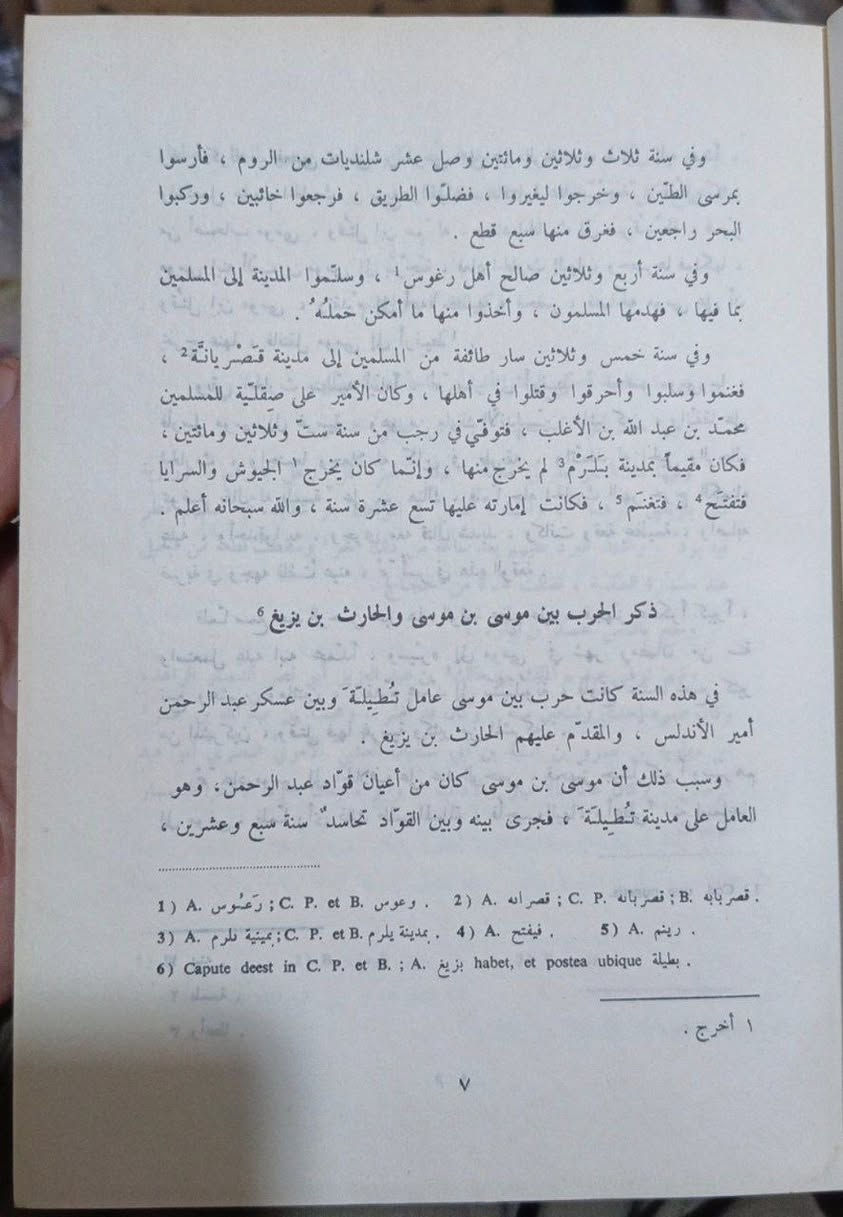 وفي سنة ثلاث وثلاثين ومائتين وصل عشر شلنديات من الروم ، فأرسوا
بمرسى الطّين ، وخرجوا ليغيروا ، فضلّوا الطريق ، فرجعوا خائبين ، وركبوا
البحر راجعين ، فغرق منها سبع قطع .
وفي سنة أربع وثلاثين صالح أهل رغوس1 ، وسلّموا المدينة إلى المسلمين
بما فيها ، فهدمها المسلمون ، وأخذوا منها ما أمكن حملُهُ .
وفي سنة خمس وثلاثين سار طائفة من المسلمين إلى مدينة قَصْريانّة2 ،
فغنموا وسلبوا وأحرقوا وقتلوا في أهلها ، وكان الأمير على صِقلّية للمسلمين
محمّد بن عبد الله بن الأغلب ، فتوفّي في رجب من سنة ستّ وثلاثين ومائتين ،
فكان مقيماً بمدينة بَلَرْم3 لم يخرج منها ، وإنّما كان يخرج١ الجيوش والسرايا
فتفتَح4 ، فتغنَم5 ، فكانت إمارته عليها تسع عشرة سنة ، والله سبحانه أعلم .
ذكر الحرب بين موسى بن موسى والحارث بن يزيغ6
في هذه السنة كانت حرب بين موسى عامل تُطِيلَةَ وبين عسكر عبد الرحمن
أمير الأندلس ، والمقدّم عليهم الحارث بن يزيغ .
وسبب ذلك أن موسى بن موسى كان من أعيان قوّاد عبد الرحمن ، وهو
العامل على مدينة تُطِيلَةَ ، فجرى بينه وبين القوّاد تحاسدٌ سنة سبع وعشرين ،
1) A. رَعُوس ; C. P. et B. وعوس . 2) A. قصرانه ; C. P. قصربانه ; B. قصربابه .
3) A. ; C. P. et B. بمدينة يلرم . 4) A. فيفتح . 5) A. رينم .
6) Capute deest in C. P. et B. ; A. بزيغ habet, et postea ubique بطيلة .
١ أخرج .
٧